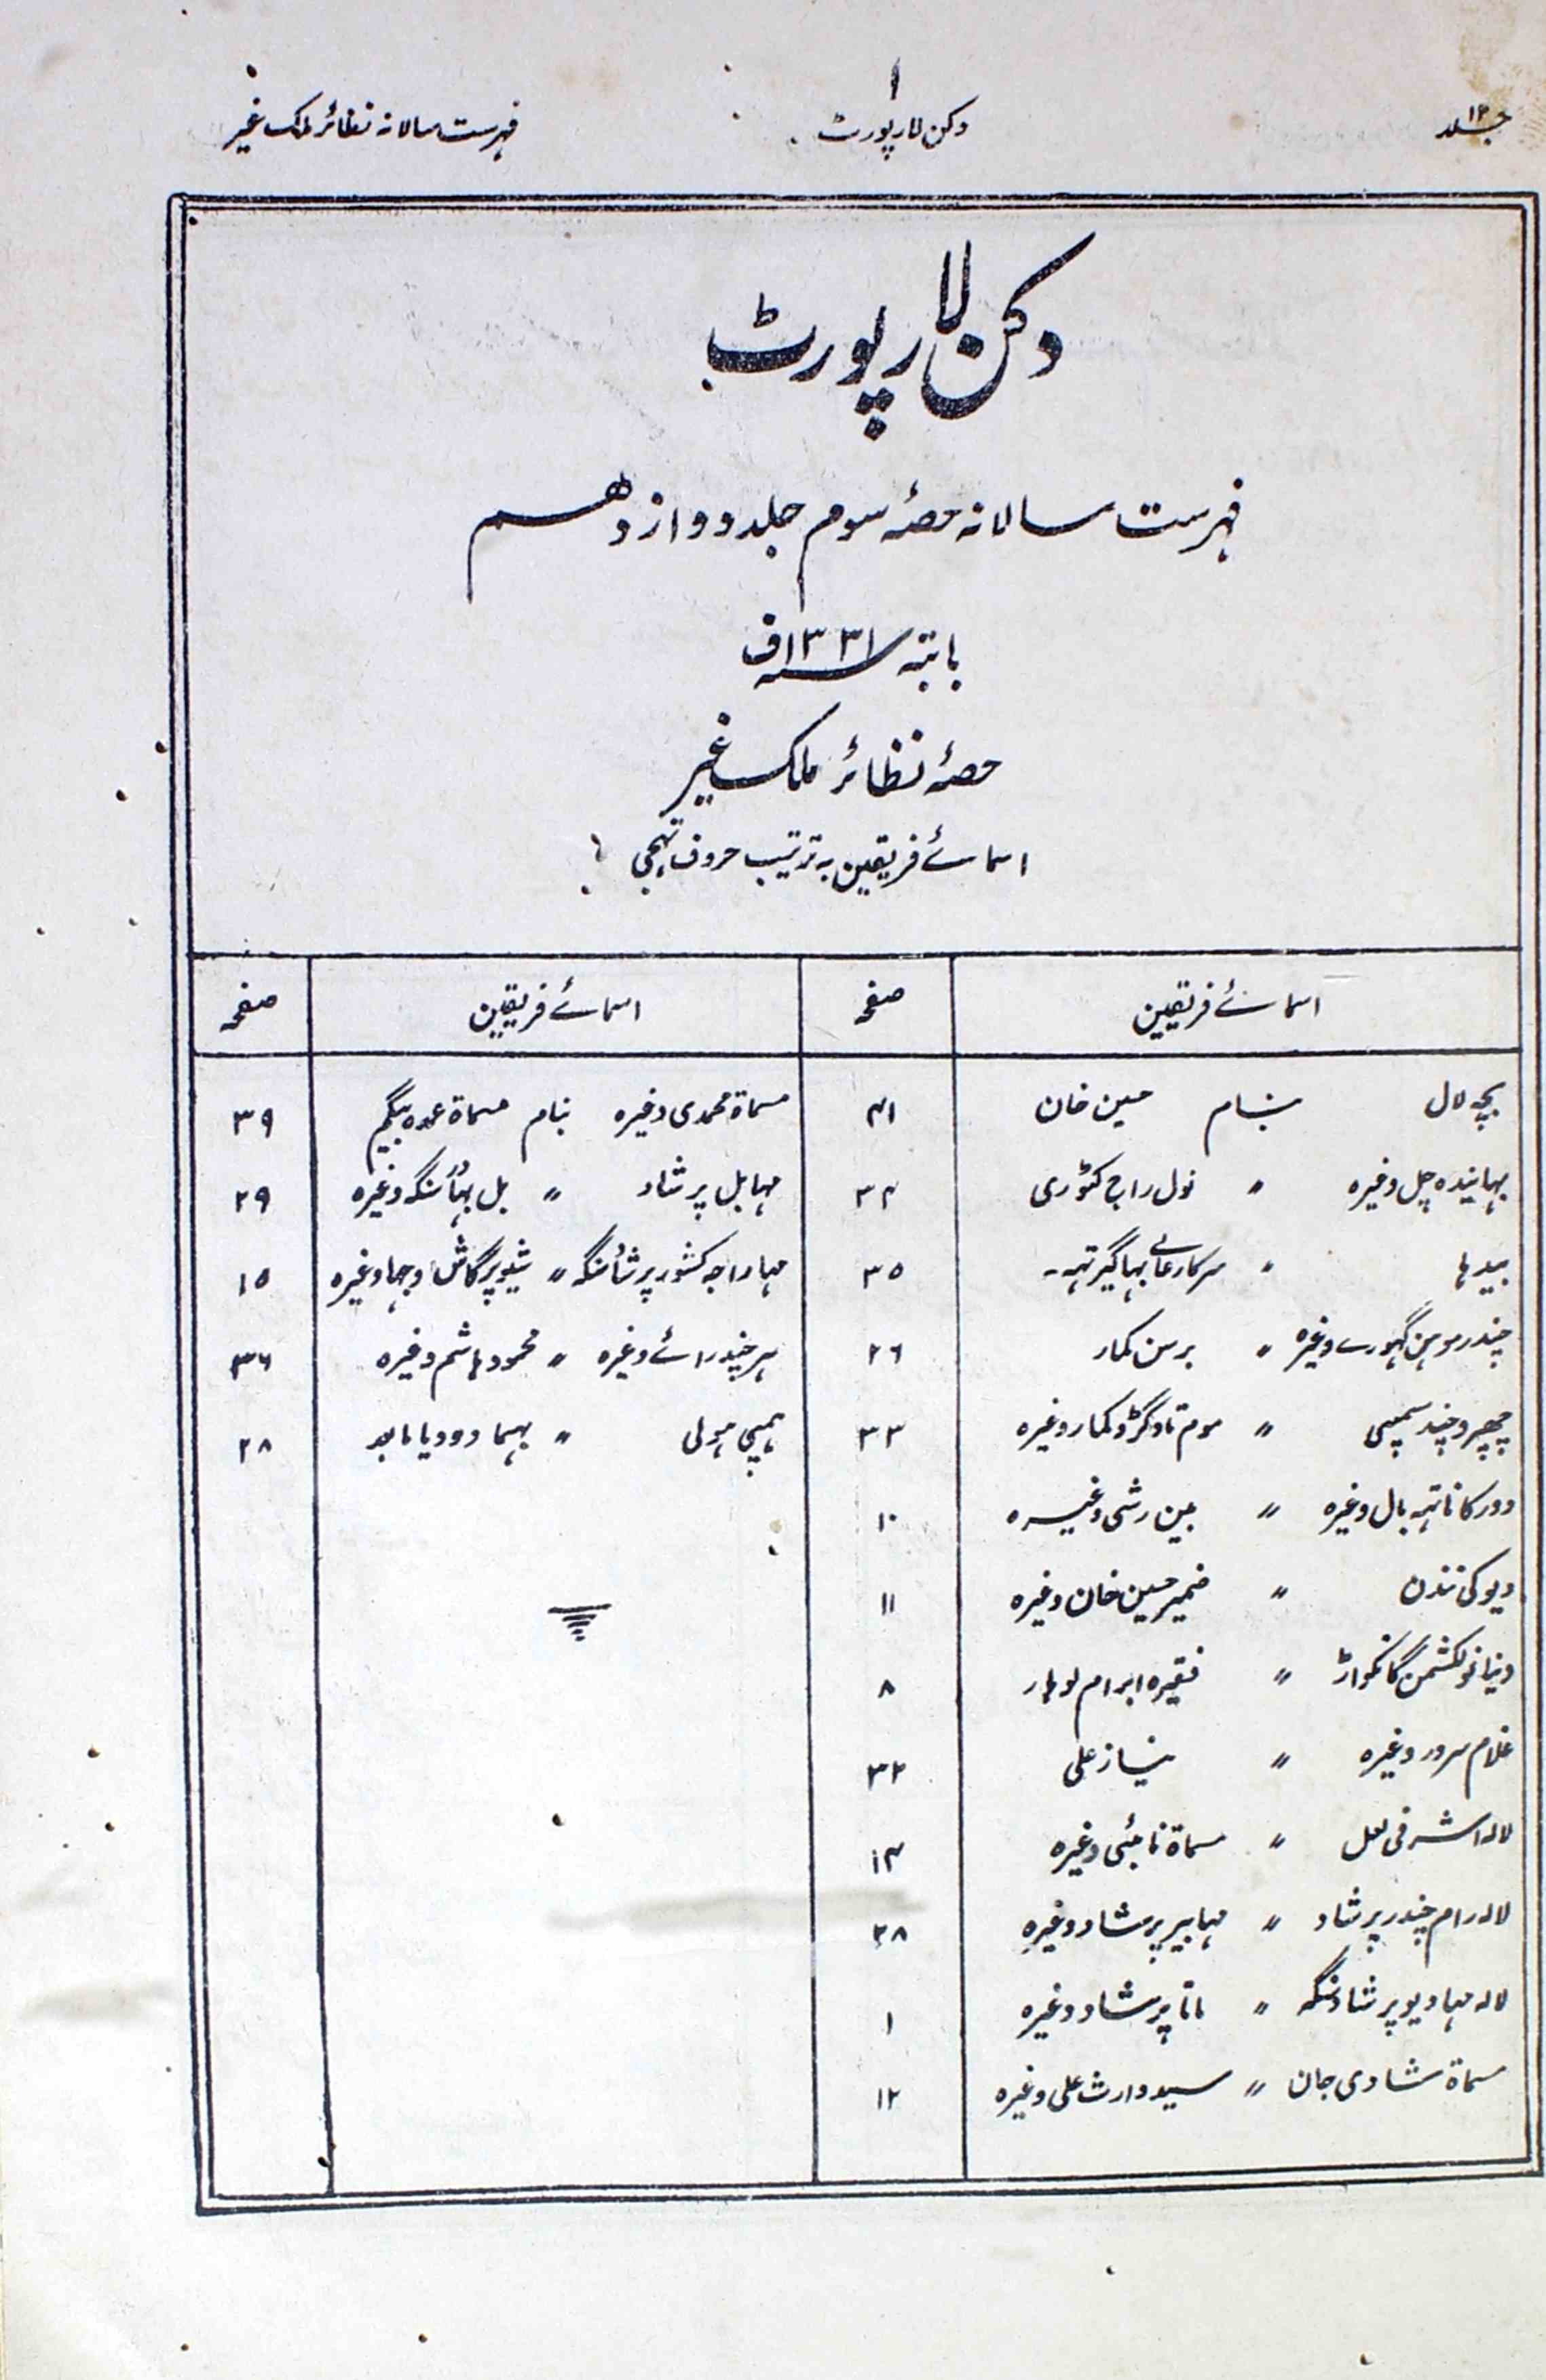 جلد ۱۲
۱
دکن لا رپورٹ
فہرست سالانہ نظائر ملک غیر
دکن لا رپورٹ
فہرست سالانہ حصۂ سوم جلد دوازدہم
بابتہ سنہ ۱۳۳۱ف
حصۂ نظائر ملک غیر
اسمائے فریقین بہ ترتیب حروف تہجی
اسمائے فریقین صفحہ
بچہ لال بنام حسین خان ۴۱
وغیرہ " نول راج کٹوری ۳۴
بیدہا " سرکار عالی ۳۵
چندر موہن گہورے وغیرہ " برسن کمار ۲۶
" وغیرہ ۳۳
دورکا ناتہہ بال وغیرہ " وغیرہ ۱۰
دیوکی نندن " ضمیر حسین خان وغیرہ ۱۱
لکشمن گائکواڑ " فقیرہ ابرام لوہار ۸
غلام سرور وغیرہ " نیاز علی ۳۲
لالہ اشرفی لعل " مسماۃ وغیرہ ۱۴
لالہ رام چندر پرشاد " مہابیر پرشاد وغیرہ ۲۸
لالہ مہادیو پرشاد سنگہ " ماتا پرشاد وغیرہ ۱
مسماۃ شادی جان " سید وارث علی وغیرہ ۱۲
اسمائے فریقین صفحہ
مسماۃ محمدی وغیرہ بنام مسماۃ عمدہ بیگم ۳۹
مہابل پرشاد " وغیرہ ۲۹
مہاراجہ کشور پرشاد سنگہ " وغیرہ ۱۵
ہر چند رائے وغیرہ " محمود ہاشم وغیرہ ۳۶
" ۲۸